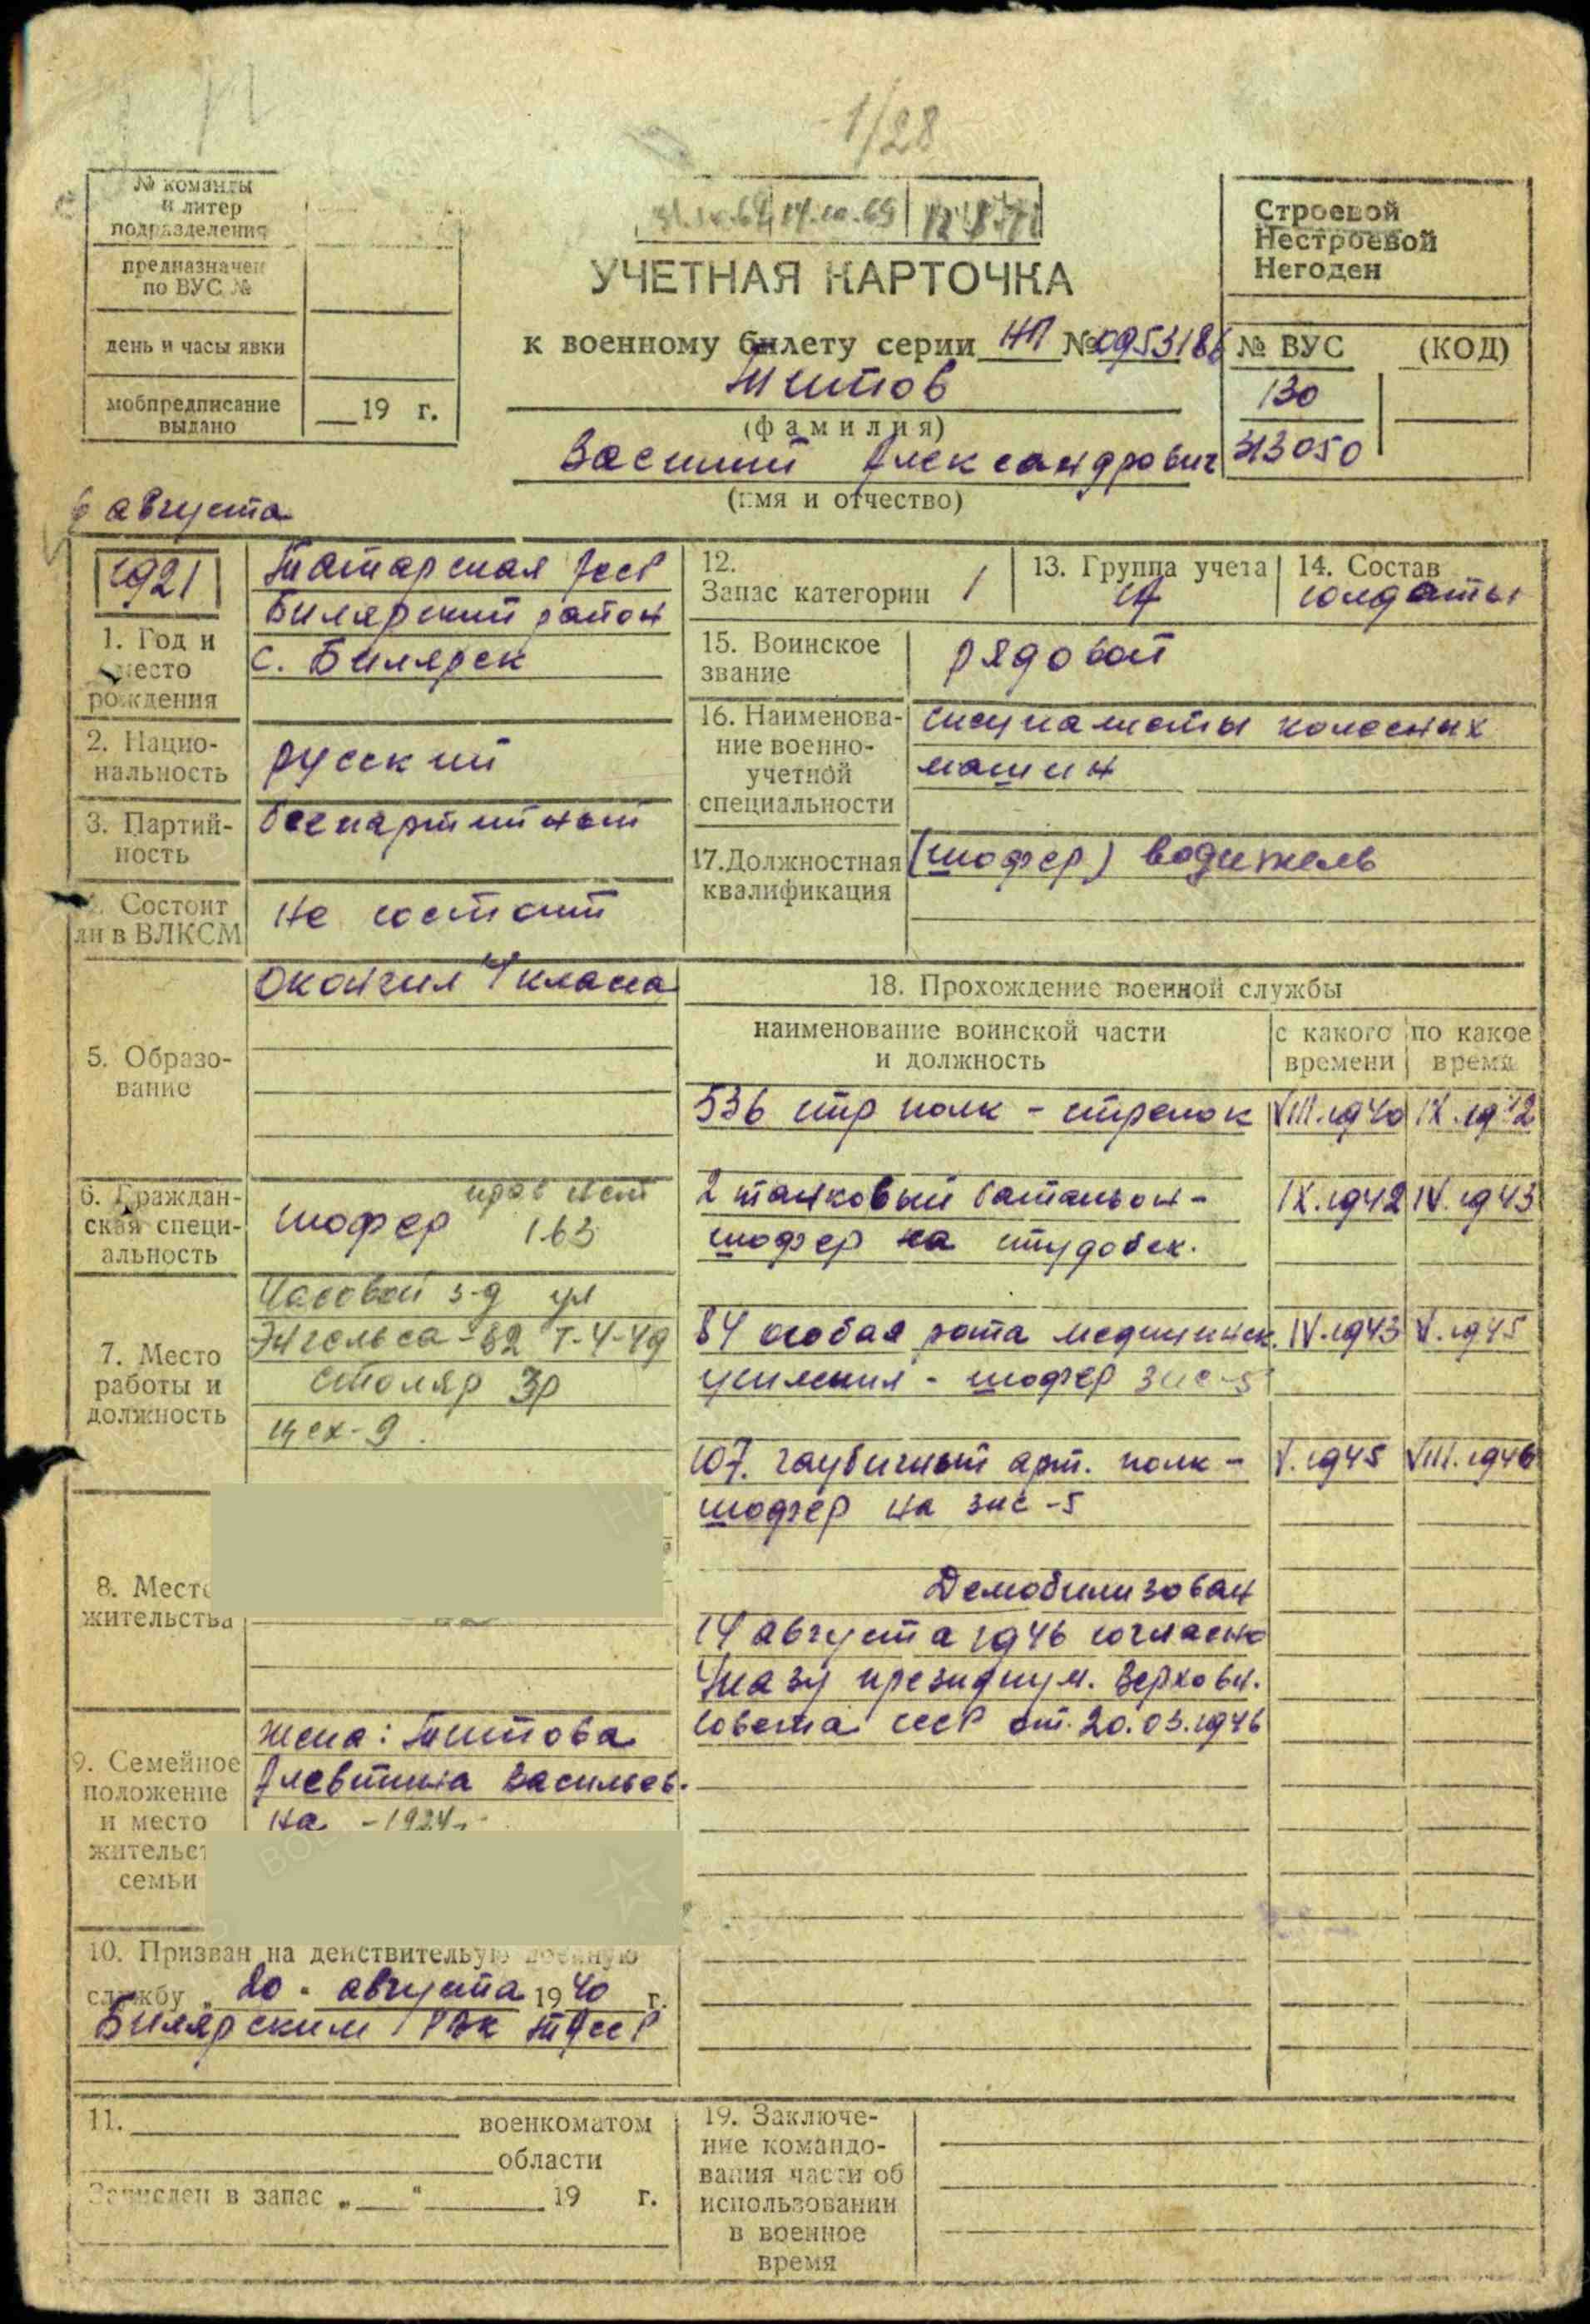 1/28
№ команды
и литер
подразделения
предназначен
по ВУС №
день и часы явки
мобпредписание
выдано
19 г.
14.10.69
УЧЕТНАЯ КАРТОЧКА
к военному билету серии НП № 0953186
Титов
(фамилия)
Василий Александрович
(имя и отчество)
Строевой
Нестроевой
Негоден
№ ВУС (КОД)
130
313050
6 августа
1921
1. Год и
место
рождения
Татарская АССР
Билярский район
с. Билярск
2. Нацио-
нальность
русский
3. Партий-
ность
беспартийный
4. Состоит
ли в ВЛКСМ
не состоит
5. Образо-
вание
Окончил 4 класса
6. Граждан-
ская специ-
альность
шофер
прав нет
1.63
7. Место
работы и
должность
Часовой з-д ул
Энгельса-62 т-4-49
столяр 3р
цех-9.
8. Место
жительства
9. Семейное
положение
и место
жительст
семьи
жена: Титова
Алевтина Васильев-
на -1924г.
10. Призван на действительную военную
службу "20" августа 1940 г.
Билярским РВК ТАССР
11. военкоматом
области
Зачислен в запас „ “ 19 г.
12.
Запас категории 1
13. Группа учета
СА
14. Состав
солдаты
15. Воинское
звание
рядовой
16. Наименова-
ние военно-
учетной
специальности
специалисты колесных
машин
17. Должностная
квалификация
(шофер) водитель
18. Прохождение военной службы
наименование воинской части
и должность
с какого
времени
по какое
время
536 стр полк - стрелок VIII.1940 IX.1942
2 танковый батальон- IX.1942 IV.1943
шофер на студобек.
84 особая рота медицинск. IV.1943 V.1945
усиления - шофер зис-5
107. гаубичный арт. полк- V.1945 VIII.1946
шофер на зис-5
Демобилизован
14 августа 1946 согласно
Указу президиум. Верховн.
Совета СССР от. 20.03.1946
19. Заключе-
ние командо-
вания части об
использовании
в военное
время